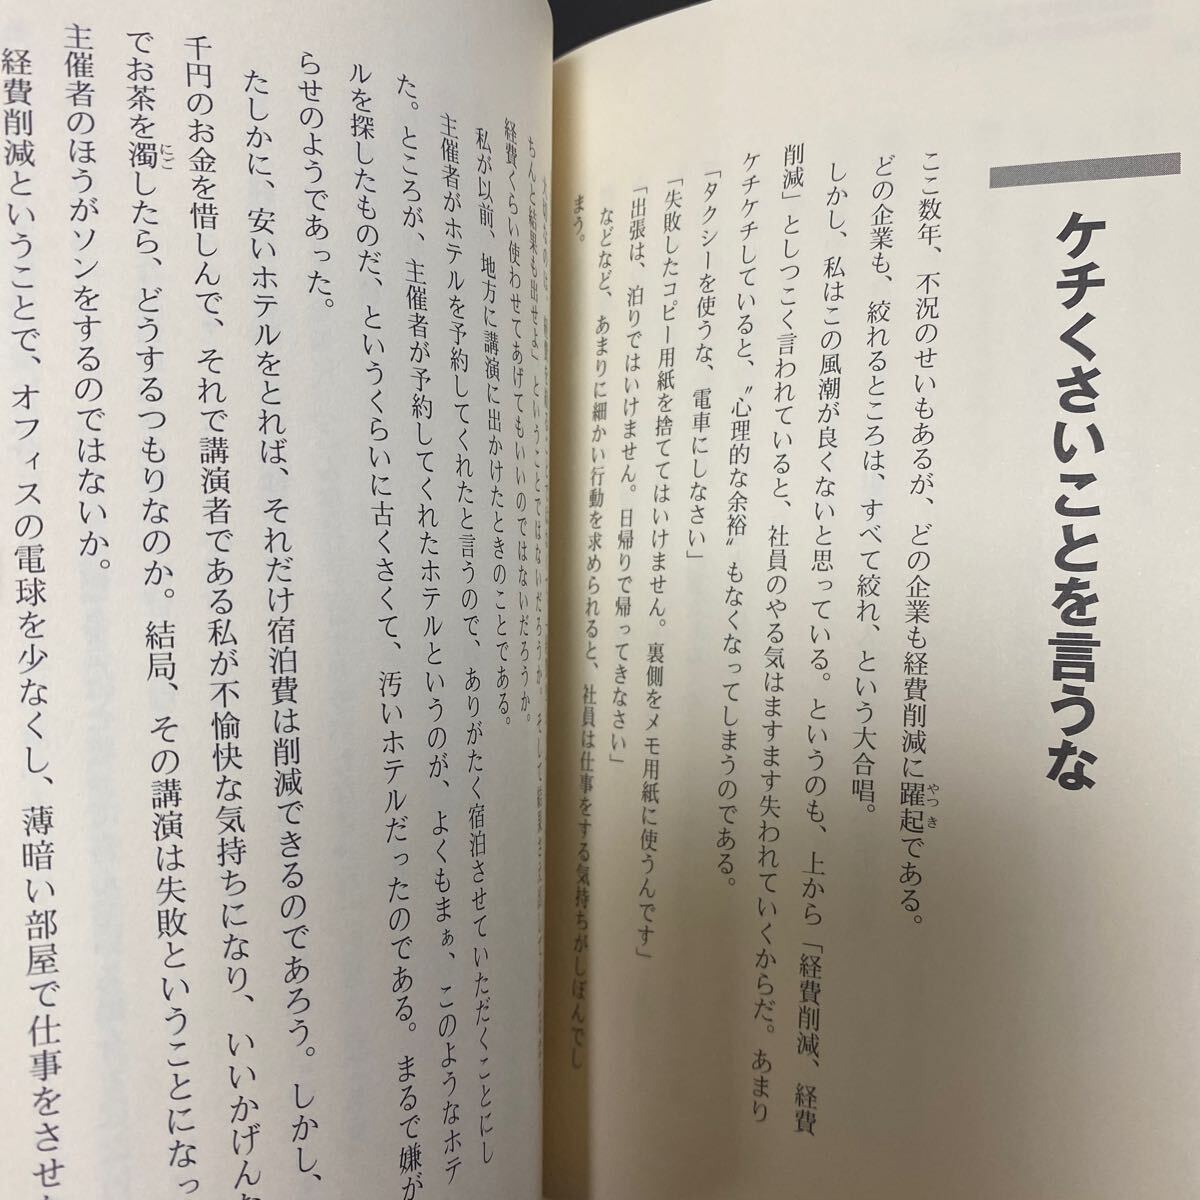 ケチくさいことを言うな
ここ数年、不況のせいもあるが、どの企業も経費削減に躍起である。
やっき
どの企業も、絞れるところは、すべて絞れ、という大合唱。
しかし、私はこの風潮が良くないと思っている。というのも、上から「経費削減、経費
削減」としつこく言われていると、社員のやる気はますます失われていくからだ。あまり
ケチケチしていると、〝心理的な余裕〟もなくなってしまうのである。
「タクシーを使うな、電車にしなさい」
「失敗したコピー用紙を捨ててはいけません。裏側をメモ用紙に使うんです」
「出張は、泊りではいけません。日帰りで帰ってきなさい」
などなど、あまりに細かい行動を求められると、社員は仕事をする気持ちがしぼんでし
まう。
ちんと結果も出せよ」ということではないだろうか。そして
経費くらい使わせてあげてもいいのではないだろうか。
私が以前、地方に講演に出かけたときのことである。
主催者がホテルを予約してくれたと言うので、ありがたく宿泊させていただくことにし
た。ところが、主催者が予約してくれたホテルというのが、よくもまぁ、このようなホテ
ルを探したものだ、というくらいに古くさくて、汚いホテルだったのである。まるで嫌が
らせのようであった。
たしかに、安いホテルをとれば、それだけ宿泊費は削減できるのであろう。しかし、
千円のお金を惜しんで、それで講演者である私が不愉快な気持ちになり、いいかげんな
でお茶を濁したら、どうするつもりなのか。結局、その講演は失敗ということになっ
にご
主催者のほうがソンをするのではないか。
経費削減ということで、オフィスの電球を少なくし、薄暗い部屋で仕事をさせ